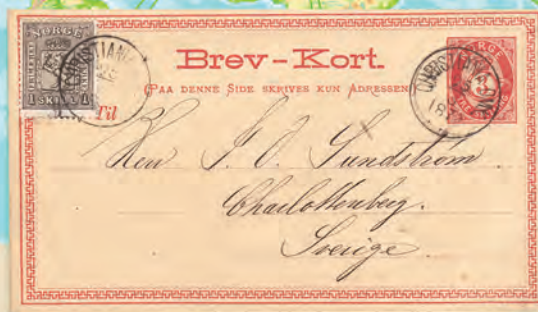 NORGE
1 SKILL. 1
CHRISTIANIA
Brev-Kort.
(PAA DENNE SIDE SKRIVES KUN ADRESSEN)
NORGE
3
CHRISTIANIA
Til
Herr J. O. Sundström
Charlottenberg.
Sverige.